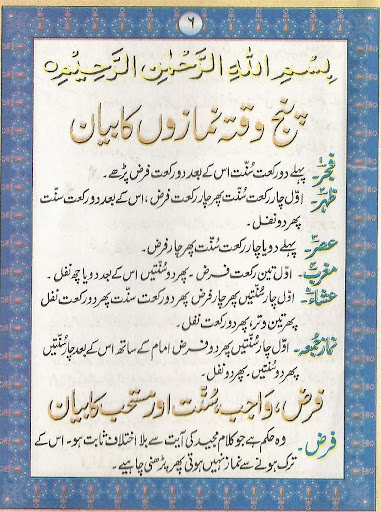 ۶
بِسْمِ اللّٰهِ الرَّحْمٰنِ الرَّحِيْمِ
پنج وقتہ نمازوں کا بیان
فجر۔ پہلے دو رکعت سُنّت اس کے بعد دو رکعت فرض پڑھے۔
ظہر۔ اوّل چار رکعت سُنّت پھر چار رکعت فرض، اس کے بعد دو رکعت سنّت
پھر دو نفل۔
عصر۔ پہلے دو یا چار رکعت سُنّت پھر چار فرض۔
مغرب۔ اوّل تین رکعت فرض۔ پھر دو سُنّتیں اس کے بعد دو یا چھ نفل۔
عشاء۔ اوّل چار سُنّتیں پھر چار فرض پھر دو رکعت سنّت پھر دو رکعت نفل
پھر تین وتر، پھر دو رکعت نفل۔
نماز جمعہ۔ اوّل چار سُنّتیں پھر دو فرض امام کے ساتھ اس کے بعد چار سُنّتیں
پھر دو سُنّتیں۔ پھر دو نفل۔
فرض، واجب، سُنّت اور مستحب کا بیان
فرض۔ وہ حکم ہے جو کلام مجید کی آیت سے بلا اختلاف ثابت ہو۔ اس کے
ترک ہونے سے نماز نہیں ہوتی پھر پڑھنی چاہیے۔